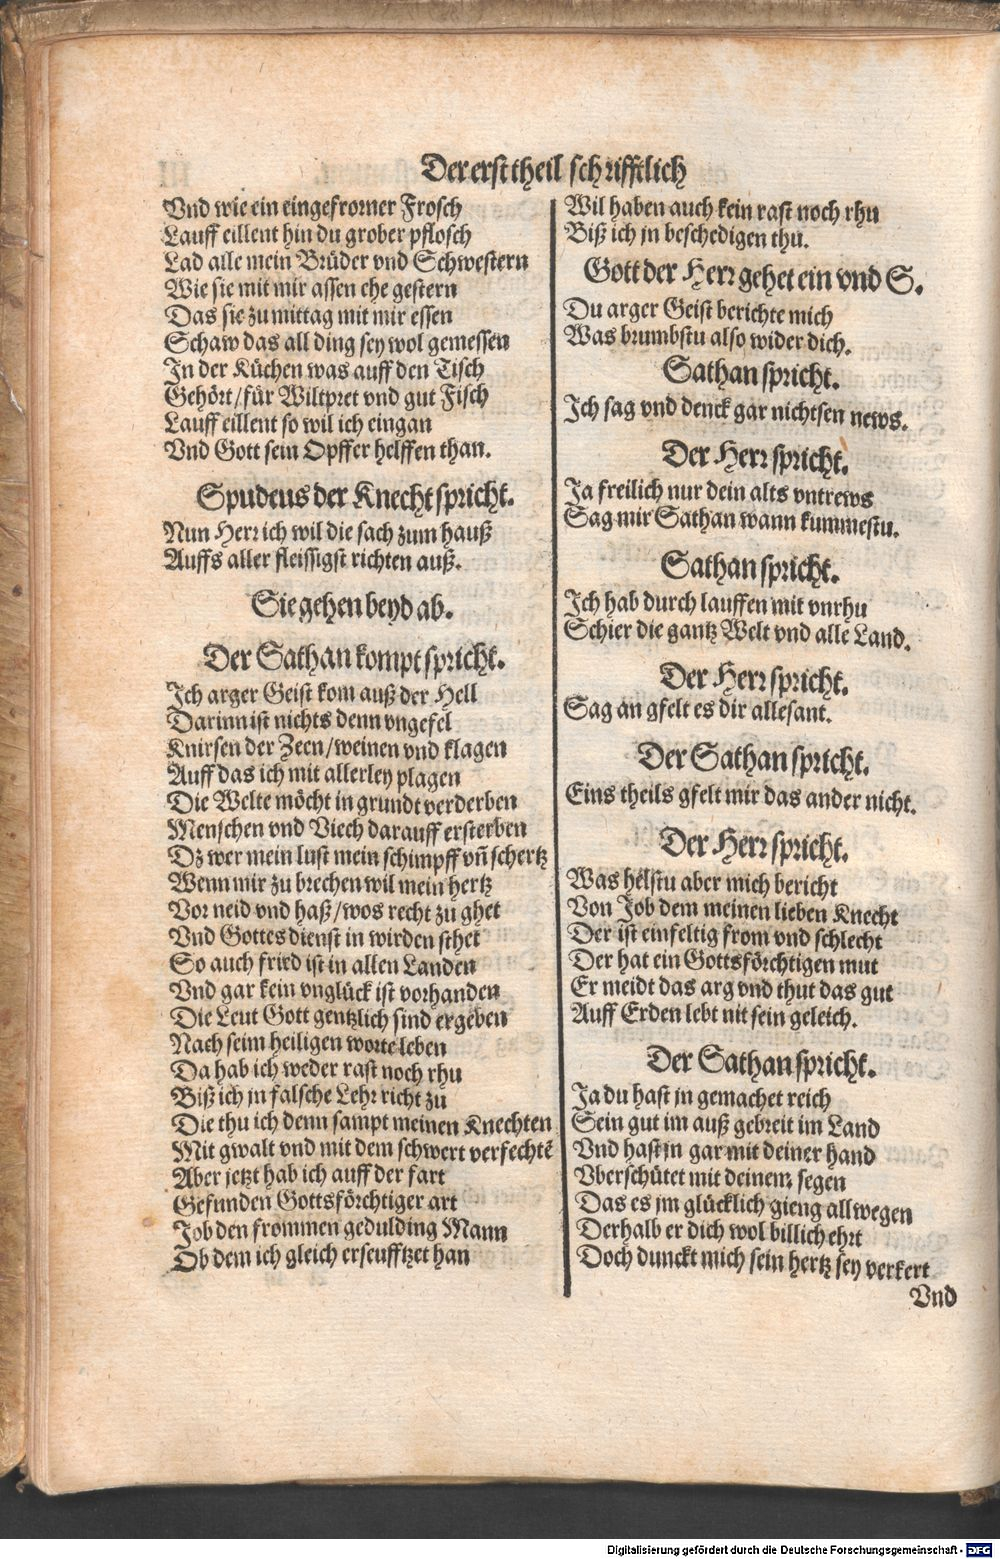 Der erst theil schrifftlich
Vnd wie ein eingefrorner Frosch
Lauff eillent hin du grober pflosch
Lad alle mein Brüder vnd Schwestern
Wie sie mit mir assen ehe gestern
Das sie zu mittag mit mir essen
Schaw das all ding sey wol gemessen
In der Küchen was auff den Tisch
Gehört/für Wiltpret vnd gut Fisch
Lauff eillent so wil ich eingan
Vnd Gott sein Opffer helffen than.
Spudeus der Knecht spricht.
Nun Herr ich wil die sach zum hauß
Auffs aller fleissigst richten auß.
Sie gehen beyd ab.
Der Sathan kompt spricht.
Ich arger Geist kom auß der Hell
Darinn ist nichts denn vngefel
Knirsen der Zeen/weinen vnd klagen
Auff das ich mit allerley plagen
Die Welte möcht in grundt verderben
Menschen vnd Viech darauff ersterben
Dz wer mein lust mein schimpff vñ schertz
Wenn mir zu brechen wil mein hertz
Vor neid vnd haß/wos recht zu ghet
Vnd Gottes dienst in wirden sthet
So auch fried ist in allen Landen
Vnd gar kein vnglück ist vorhanden
Die Leut Gott gentzlich sind ergeben
Nach seim heiligen worte leben
Da hab ich weder rast noch rhu
Biß ich jn falsche Lehr richt zu
Die thu ich denn sampt meinen Knechten
Mit gwalt vnd mit dem schwert verfechtē
Aber jetzt hab ich auff der fart
Gefunden Gottsförchtiger art
Job den frommen gedulding Mann
Ob dem ich gleich erseufftzet han
Wil haben auch kein rast noch rhu
Biß ich jn beschedigen thu.
Gott der Herr gehet ein vnd S.
Du arger Geist berichte mich
Was brumbstu also wider dich.
Sathan spricht.
Ich sag vnd denck gar nichtsen news.
Der Herr spricht.
Ja freilich nur dein alts vntrews
Sag mir Sathan wann kummestu.
Sathan spricht.
Ich hab durch lauffen mit vnrhu
Schier die gantz Welt vnd alle Land.
Der Herr spricht.
Sag an gfelt es dir allesant.
Der Sathan spricht.
Eins theils gfelt mir das ander nicht.
Der Herr spricht.
Was helstu aber mich bericht
Von Job dem meinen lieben Knecht
Der ist einfeltig from vnd schlecht
Der hat ein Gottsförchtigen mut
Er meidt das arg vnd thut das gut
Auff Erden lebt nit sein geleich.
Der Sathan spricht.
Ja du hast jn gemachet reich
Sein gut im auß gebreit im Land
Vnd hast jn gar mit deiner hand
Vberschütet mit deinem segen
Das es jm glücklich gieng allwegen
Derhalb er dich wol billich ehrt
Doch dunckt mich sein hertz sey verkert
Vnd
Digitalisierung gefördert durch die Deutsche Forschungsgemeinschaft - DFG